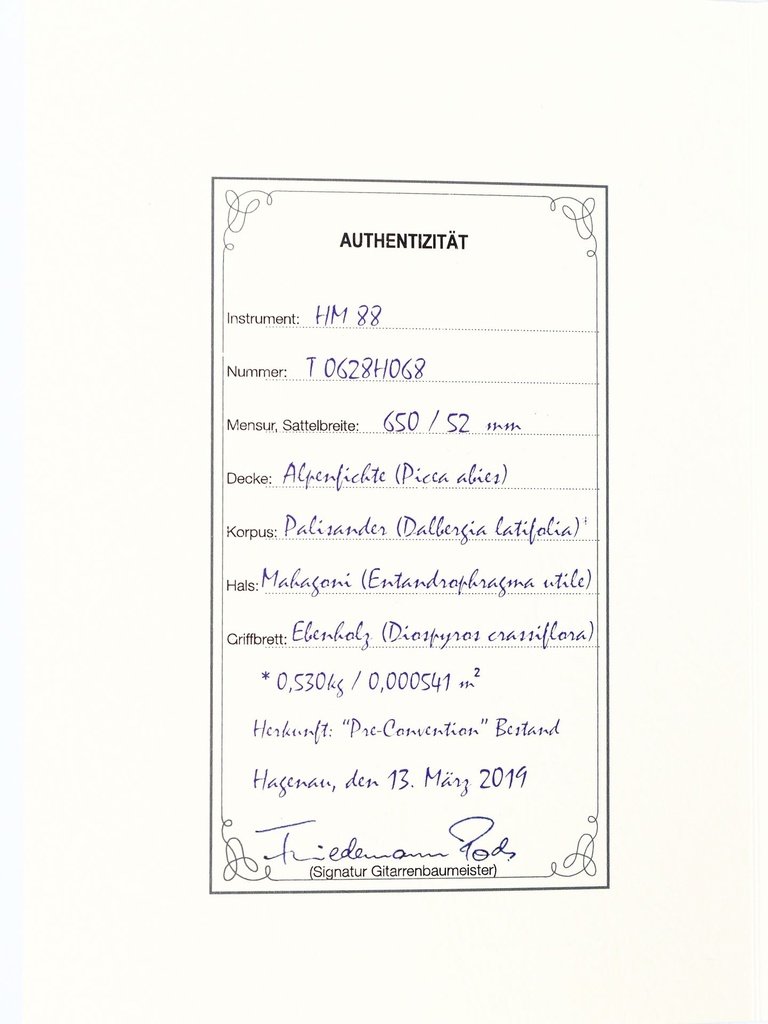 AUTHENTIZITÄT
Instrument: HM 88
Nummer: T 0628H068
Mensur, Sattelbreite: 650 / 52 mm
Decke: Alpenfichte (Picea abies)
Korpus: Palisander (Dalbergia latifolia)*
Hals: Mahagoni (Entandrophragma utile)
Griffbrett: Ebenholz (Diospyros crassiflora)
* 0,530kg / 0,000541 m²
Herkunft: "Pre-Convention" Bestand
Hagenau, den 13. März 2019
Friedemann Pods
(Signatur Gitarrenbaumeister)